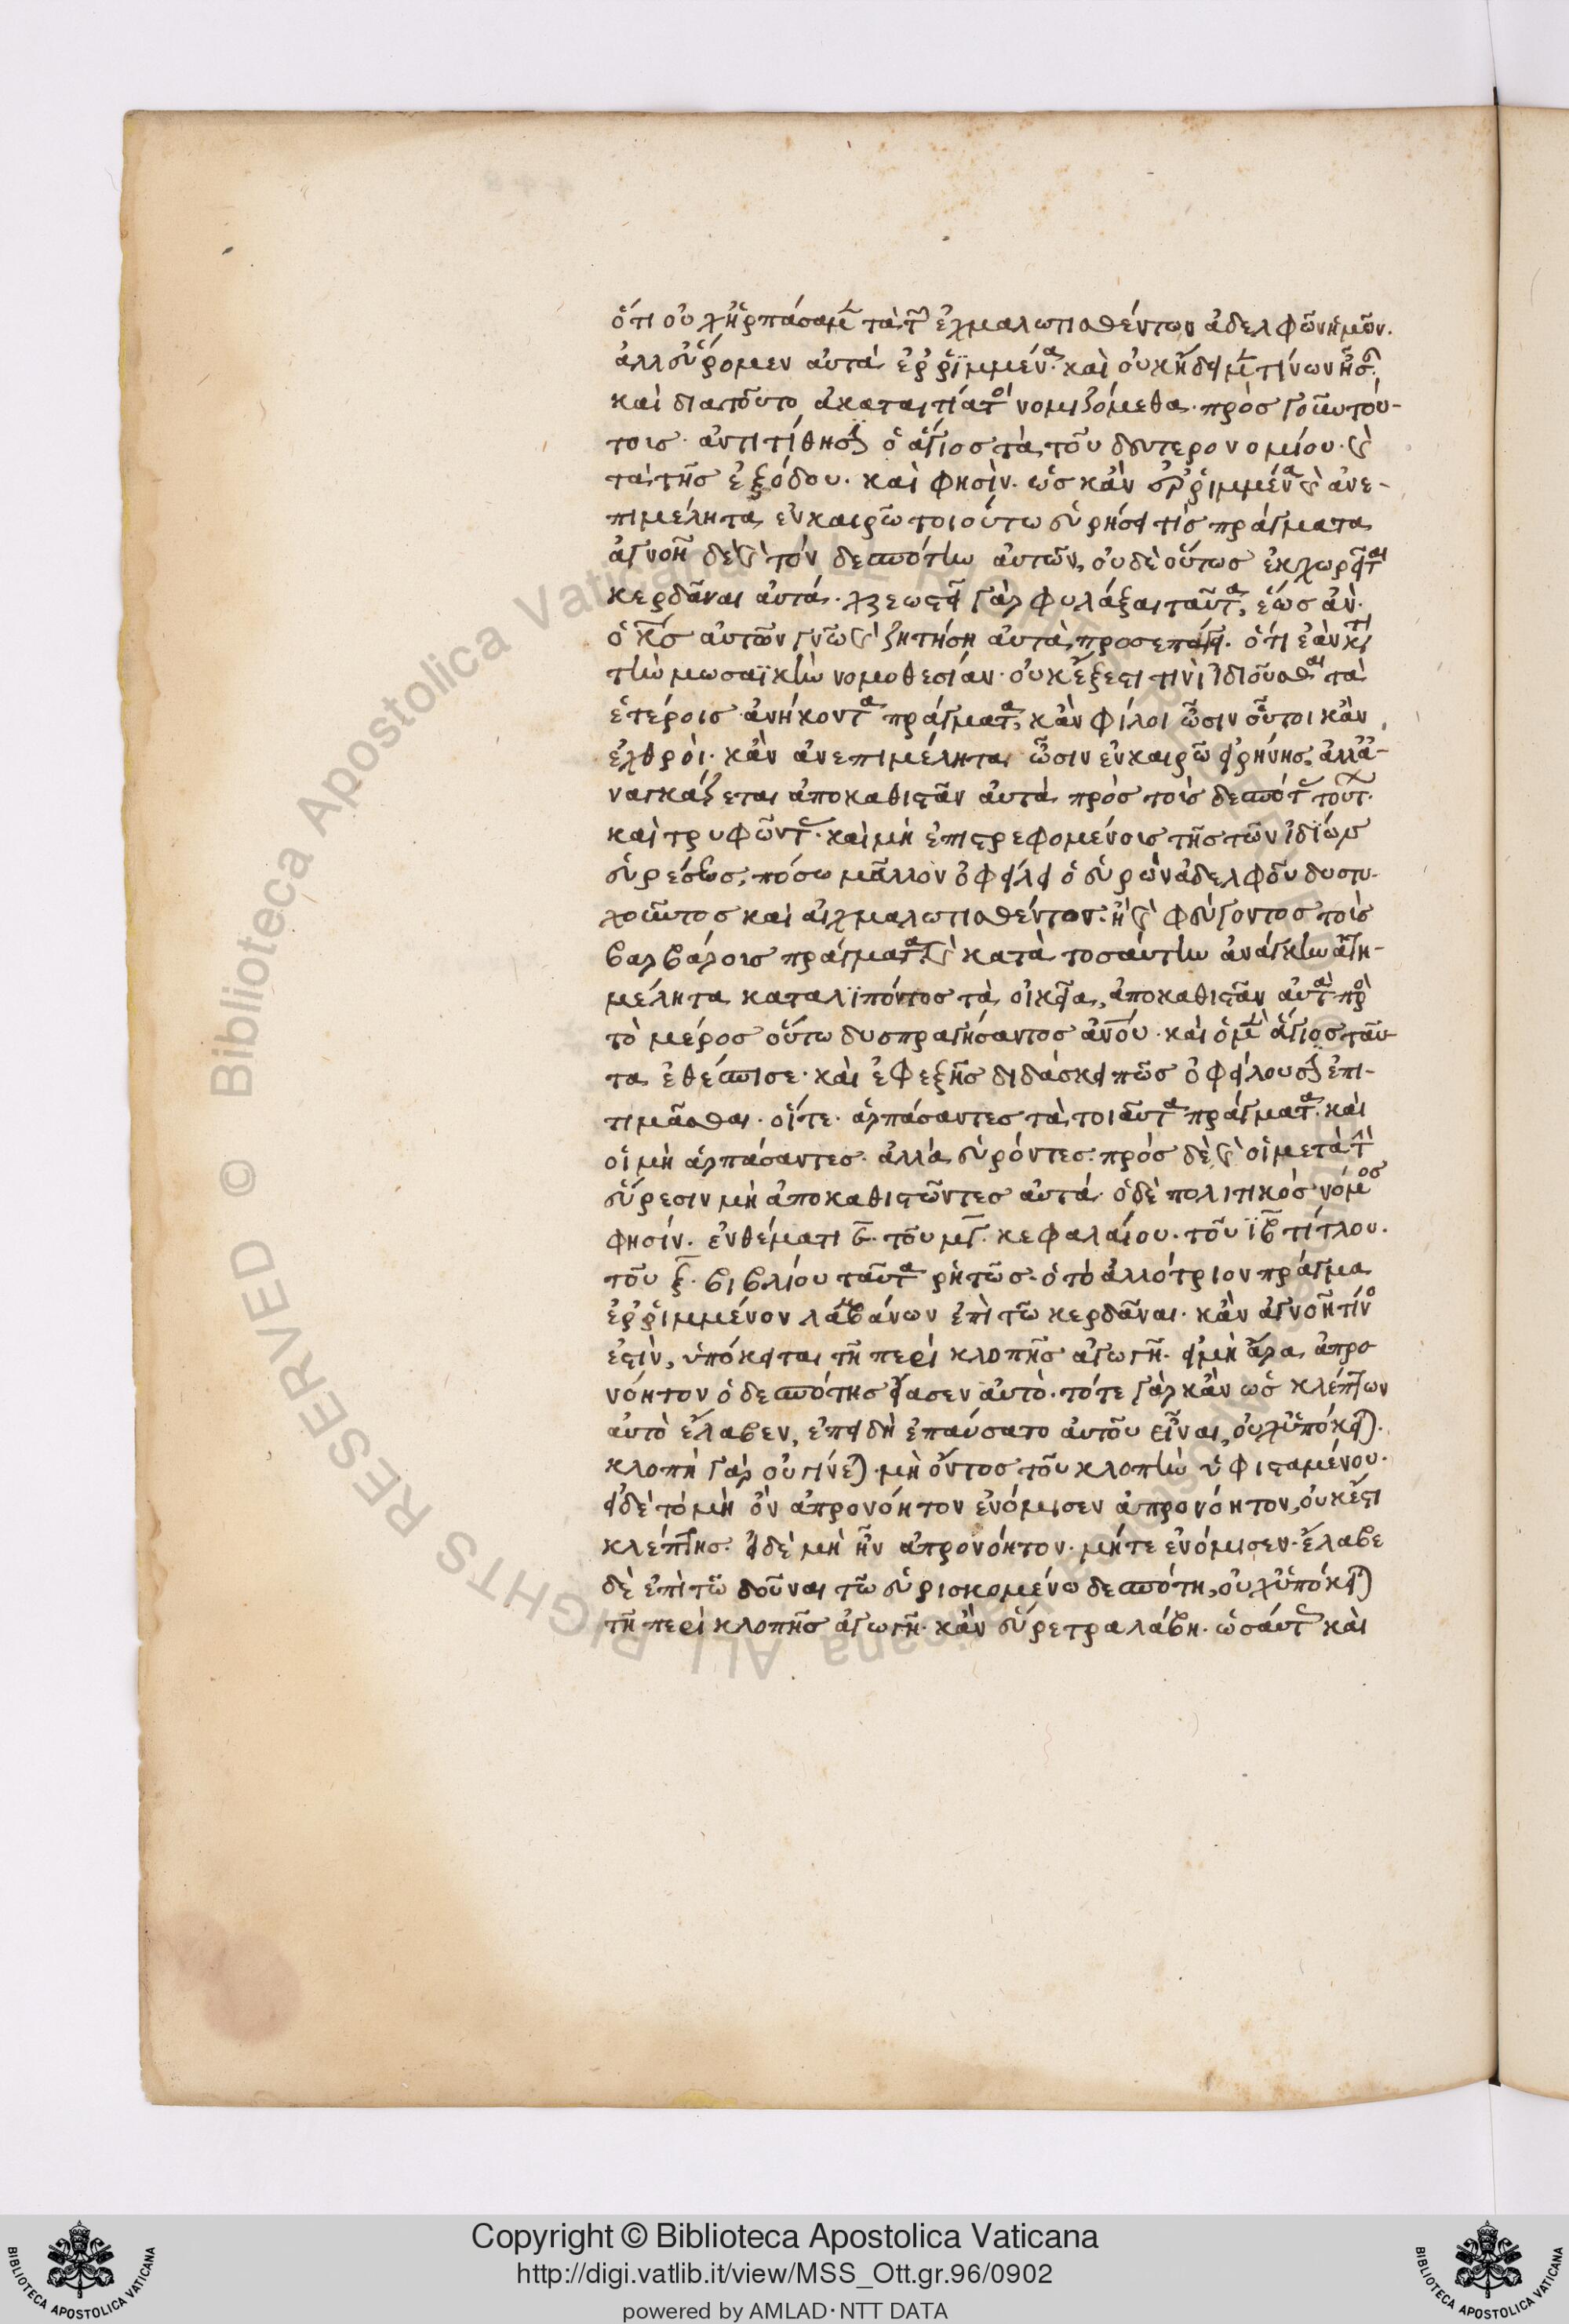 ὅτι οὐχ ἡρπάσαμεν τὰ τῶν ἐχμαλωτισθέντων ἀδελφῶν ἡμῶν.
ἀλλ' εὕρομεν αὐτὰ ἐρριμμένα· καὶ οὐκ ἤδειμεν τίνων ἦσαν·
καὶ διατοῦτο ἀκαταιτίατοι νομιζόμεθα. πρὸς γοῦν τού-
τοις ἀντιτίθησι ὁ ἅγιος τὰ τοῦ δευτερονομίου· καὶ
τὰ τῆς ἐξόδου. καὶ φησὶν. ὡς κἂν ἐρριμμένα καὶ ἀνε-
πιμέλητα ἐν καιρῶ τοιούτω εὑρήσει τίς πράγματα
ἀγνοῆ δὲ καὶ τὸν δεσπότην αὐτῶν, οὐδὲ οὕτως ἐκχωρεῖται
κερδᾶναι αὐτά. χρεωστεῖ γὰρ φυλάξαι ταῦτα, ἕως ἂν
ὁ κύριος αὐτῶν γνῶ καὶ ζητήση αὐτὰ, προσεπάγει. ὅτι ἐὰν κατὰ
τὴν μωσαϊκὴν νομοθεσίαν οὐκ ἔξεστι τινὶ ἰδιοῦσθαι τὰ
ἑτέροις ἀνήκοντα πράγματα, κἂν φίλοι ὦσιν οὗτοι κἂν
ἐχθροὶ. κἂν ἀνεπιμέλητα ὦσιν ἐν καιρῶ εἰρήνης, ἀλλ' ἀ-
ναγκάζεται ἀποκαθιστᾶν αὐτὰ πρὸς τοὺς δεσπότας τούτων
καὶ τρυφῶντας. καὶ μὴ ἐπιστρεφομένοις τῆς τῶν ἰδίων
εὑρέσεως, πόσω μᾶλλον ὀφείλει ὁ εὑρὼν ἀδελφοῦ δυστυ-
χοῦντος καὶ αἰχμαλωτισθέντος. ἢ καὶ φεύγοντος τοῖς
βαρβάροις πράγματα καὶ κατὰ τοσαύτην ἀνάγκην ἀτη-
μέλητα καταλϊπόντος τὰ οἰκεῖα, ἀποκαθιστᾶν αὐτὰ πρὸς
τὸ μέρος οὕτω δυσπραγήσαντος ἀνθρώπου. καὶ ὁ μὲν ἅγιος ταῦ-
τα ἐθέσπισε. καὶ ἐφεξῆς διδάσκει πῶς ὀφείλουσι ἐπι-
τιμᾶσθαι. οἵτε ἁρπάσαντες τὰ τοιαῦτα πράγματα. καὶ
οἱ μὴ ἁρπάσαντες ἀλλὰ εὑρόντες. πρὸς δὲ καὶ οἱ μετὰ τὴν
εὕρεσιν μὴ ἀποκαθιστῶντες αὐτά. ὁ δὲ πολιτικὸς νόμος
φησίν. ἐν θέματι ϛ. τοῦ μγ. κεφαλαίου. τοῦ ιβ τίτλου.
τοῦ ξ. βιβλίου ταῦτα ῥητῶς. ὁ τὸ ἀλλότριον πράγμα
ἐρριμμένον λαμβάνων ἐπὶ τῶ κερδᾶναι. κἂν ἀγνοῆ τίνος
ἐστὶν, ὑπόκειται τῆ περὶ κλοπῆς ἀγωγῆ. εἰ μὴ ἄρα ἀπρο
νόητον ὁ δεσπότης εἴασεν αὐτὸ. τότε γὰρ κἂν ὡς κλέπτων
αὐτὸ ἔλαβεν, ἐπειδὴ ἐπαύσατο αὐτοῦ εἶναι, οὐχ ὑπόκειται.
κλοπὴ γὰρ οὐ γίνεται μὴ ὄντος τοῦ κλοπὴν ὑφισταμένου.
εἰ δὲ τὸ μὴ ὂν ἀπρονόητον ἐνόμισεν ἀπρονόητον, οὐκ ἔστι
κλέπτης. εἰ δὲ μὴ ἦν ἀπρονόητον. μήτε ἐνόμισεν. ἔλαβε
δὲ ἐπὶ τῶ δοῦναι τῶ εὑρισκομένω δεσπότη, οὐχ ὑπόκειται
τῆ περὶ κλοπῆς ἀγωγῆ. κἂν εὕρετρα λάβη. ὡσαύτως καὶ
Copyright © Biblioteca Apostolica Vaticana
http://digi.vatlib.it/view/MSS_Ott.gr.96/0902
powered by AMLAD·NTT DATA
BIBLIOTECA APOSTOLICA VATICANA
BIBLIOTECA APOSTOLICA VATICANA
© Biblioteca Apostolica Vaticana ALL RIGHTS RESERVED